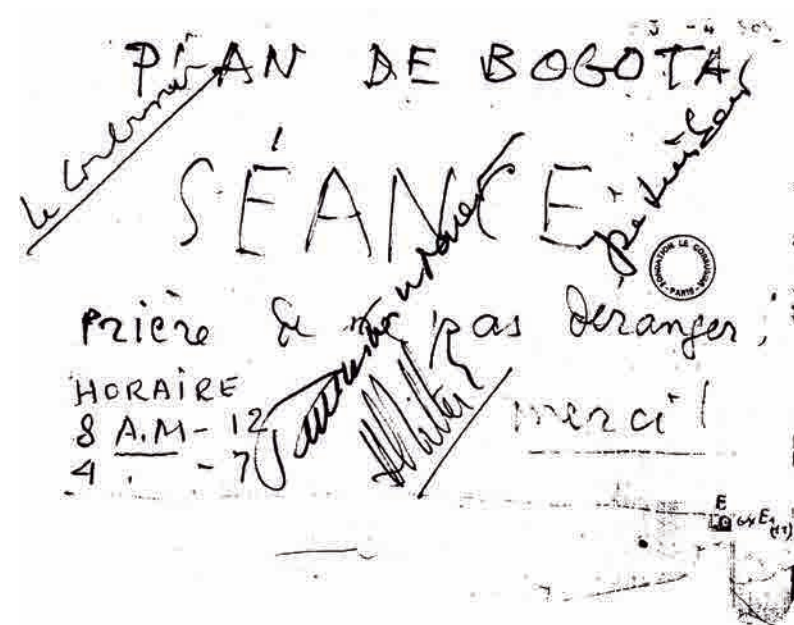 PLAN DE BOGOTA
Le Corbusier
SÉANCE
FONDATION LE CORBUSIER
PARIS
Prière de ne pas déranger,
HORAIRE
8 A.M - 12
4 . - 7
merci!
E